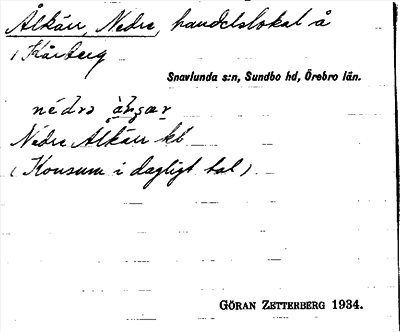 Ålkärr, Nedre, handelslokal å
i Kårberg
Snavlunda s:n, Sundbo hd, Örebro län.
Nedre Alkärr kl
(Konsum i dagligt tal).
GÖRAN ZETTERBERG 1934.